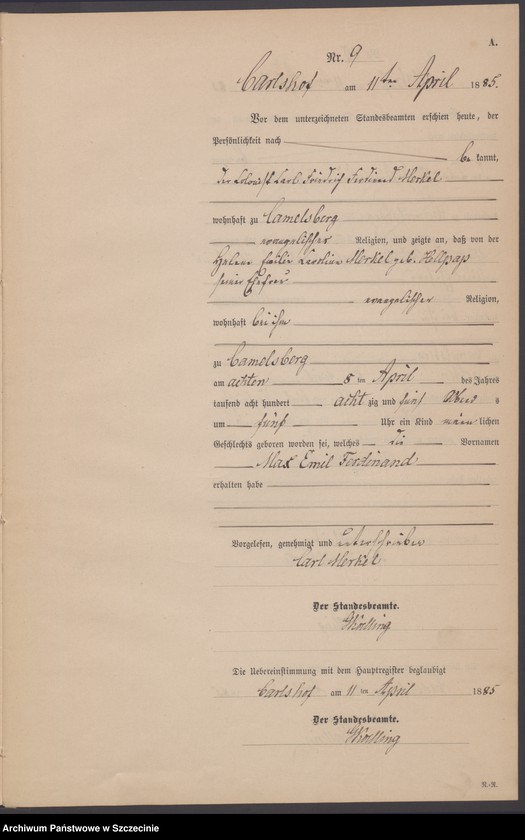 A.
Nr. 9
Carlshof am 11ten April 1885.
Vor dem unterzeichneten Standesbeamten erschien heute, der
Persönlichkeit nach
be kannt,
der Carl Friedrich Ferdinand Merkel
wohnhaft zu Camelsberg
evangelischer Religion, und zeigte an, daß von der
Emilie Caroline Merkel geb.
seiner Ehefrau
evangelischer Religion,
wohnhaft bei ihm
zu Camelsberg
am achten 8 ten April des Jahres
tausend acht hundert acht zig und fünf Abend s
um fünf Uhr ein Kind männ lichen
Geschlechts geboren worden sei, welches die Vornamen
Max Emil Ferdinand
erhalten habe
Vorgelesen, genehmigt und unterschrieben
Carl Merkel
Der Standesbeamte.
Die Uebereinstimmung mit dem Hauptregister beglaubigt
Carlshof am 11 ten April 1885
Der Standesbeamte.
R.-R.
Archiwum Państwowe w Szczecinie